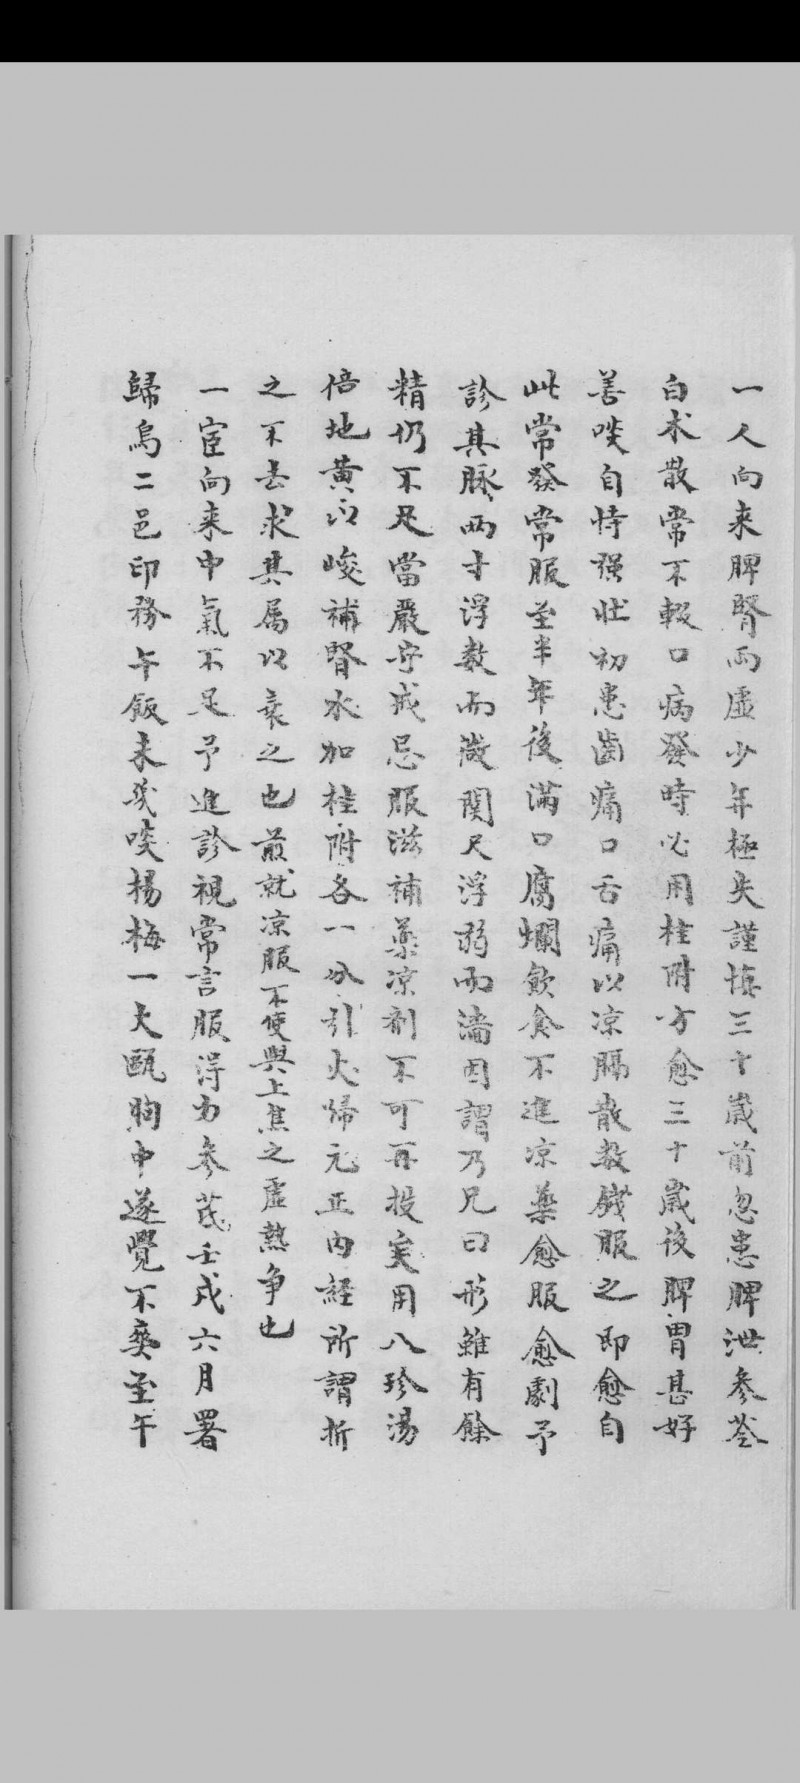 一人向来脾腎両虛少年極失謹慎三十歲前忽患脾泄參苓
白朮散常不輟口病發時必用桂附方愈三十歲後脾胃甚好
善啖自恃强壯初患齒痛口舌痛以凉膈散数劑服之即愈自
此常發常服至半年後滿口腐爛飲食不進凉藥愈服愈劇予
診其脉両寸浮数而微関尺浮弱而濇因謂乃兄曰形雖有餘
精仍不足當嚴守戒忌服滋補藥凉剤不可再投矣用八珍湯
倍地黄以峻補腎水加桂附各一分引火歸元正内経所謂折
之不去求其属以衰之也煎就凉服不使與上焦之虛熱争也
一宦向来中氣不足予進診視常言服淂力參芪壬戌六月署
歸烏二邑印務午飯未幾啖楊梅一大甌胸中遂覺不爽至午